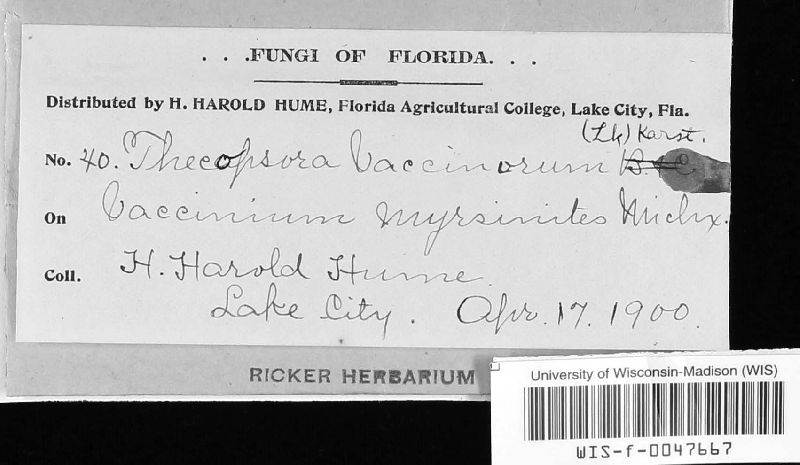 . . .FUNGI OF FLORIDA. . .
Distributed by H. HAROLD HUME, Florida Agricultural College, Lake City, Fla.
(Lk) Karst.
No. 40. Thecopsora Vaccinorum B & C
On Vaccinium Myrsinites Michx.
Coll. H. Harold Hume
Lake City. Apr. 17. 1900.
RICKER HERBARIUM
University of Wisconsin-Madison (WIS)
WIS-f-0047667